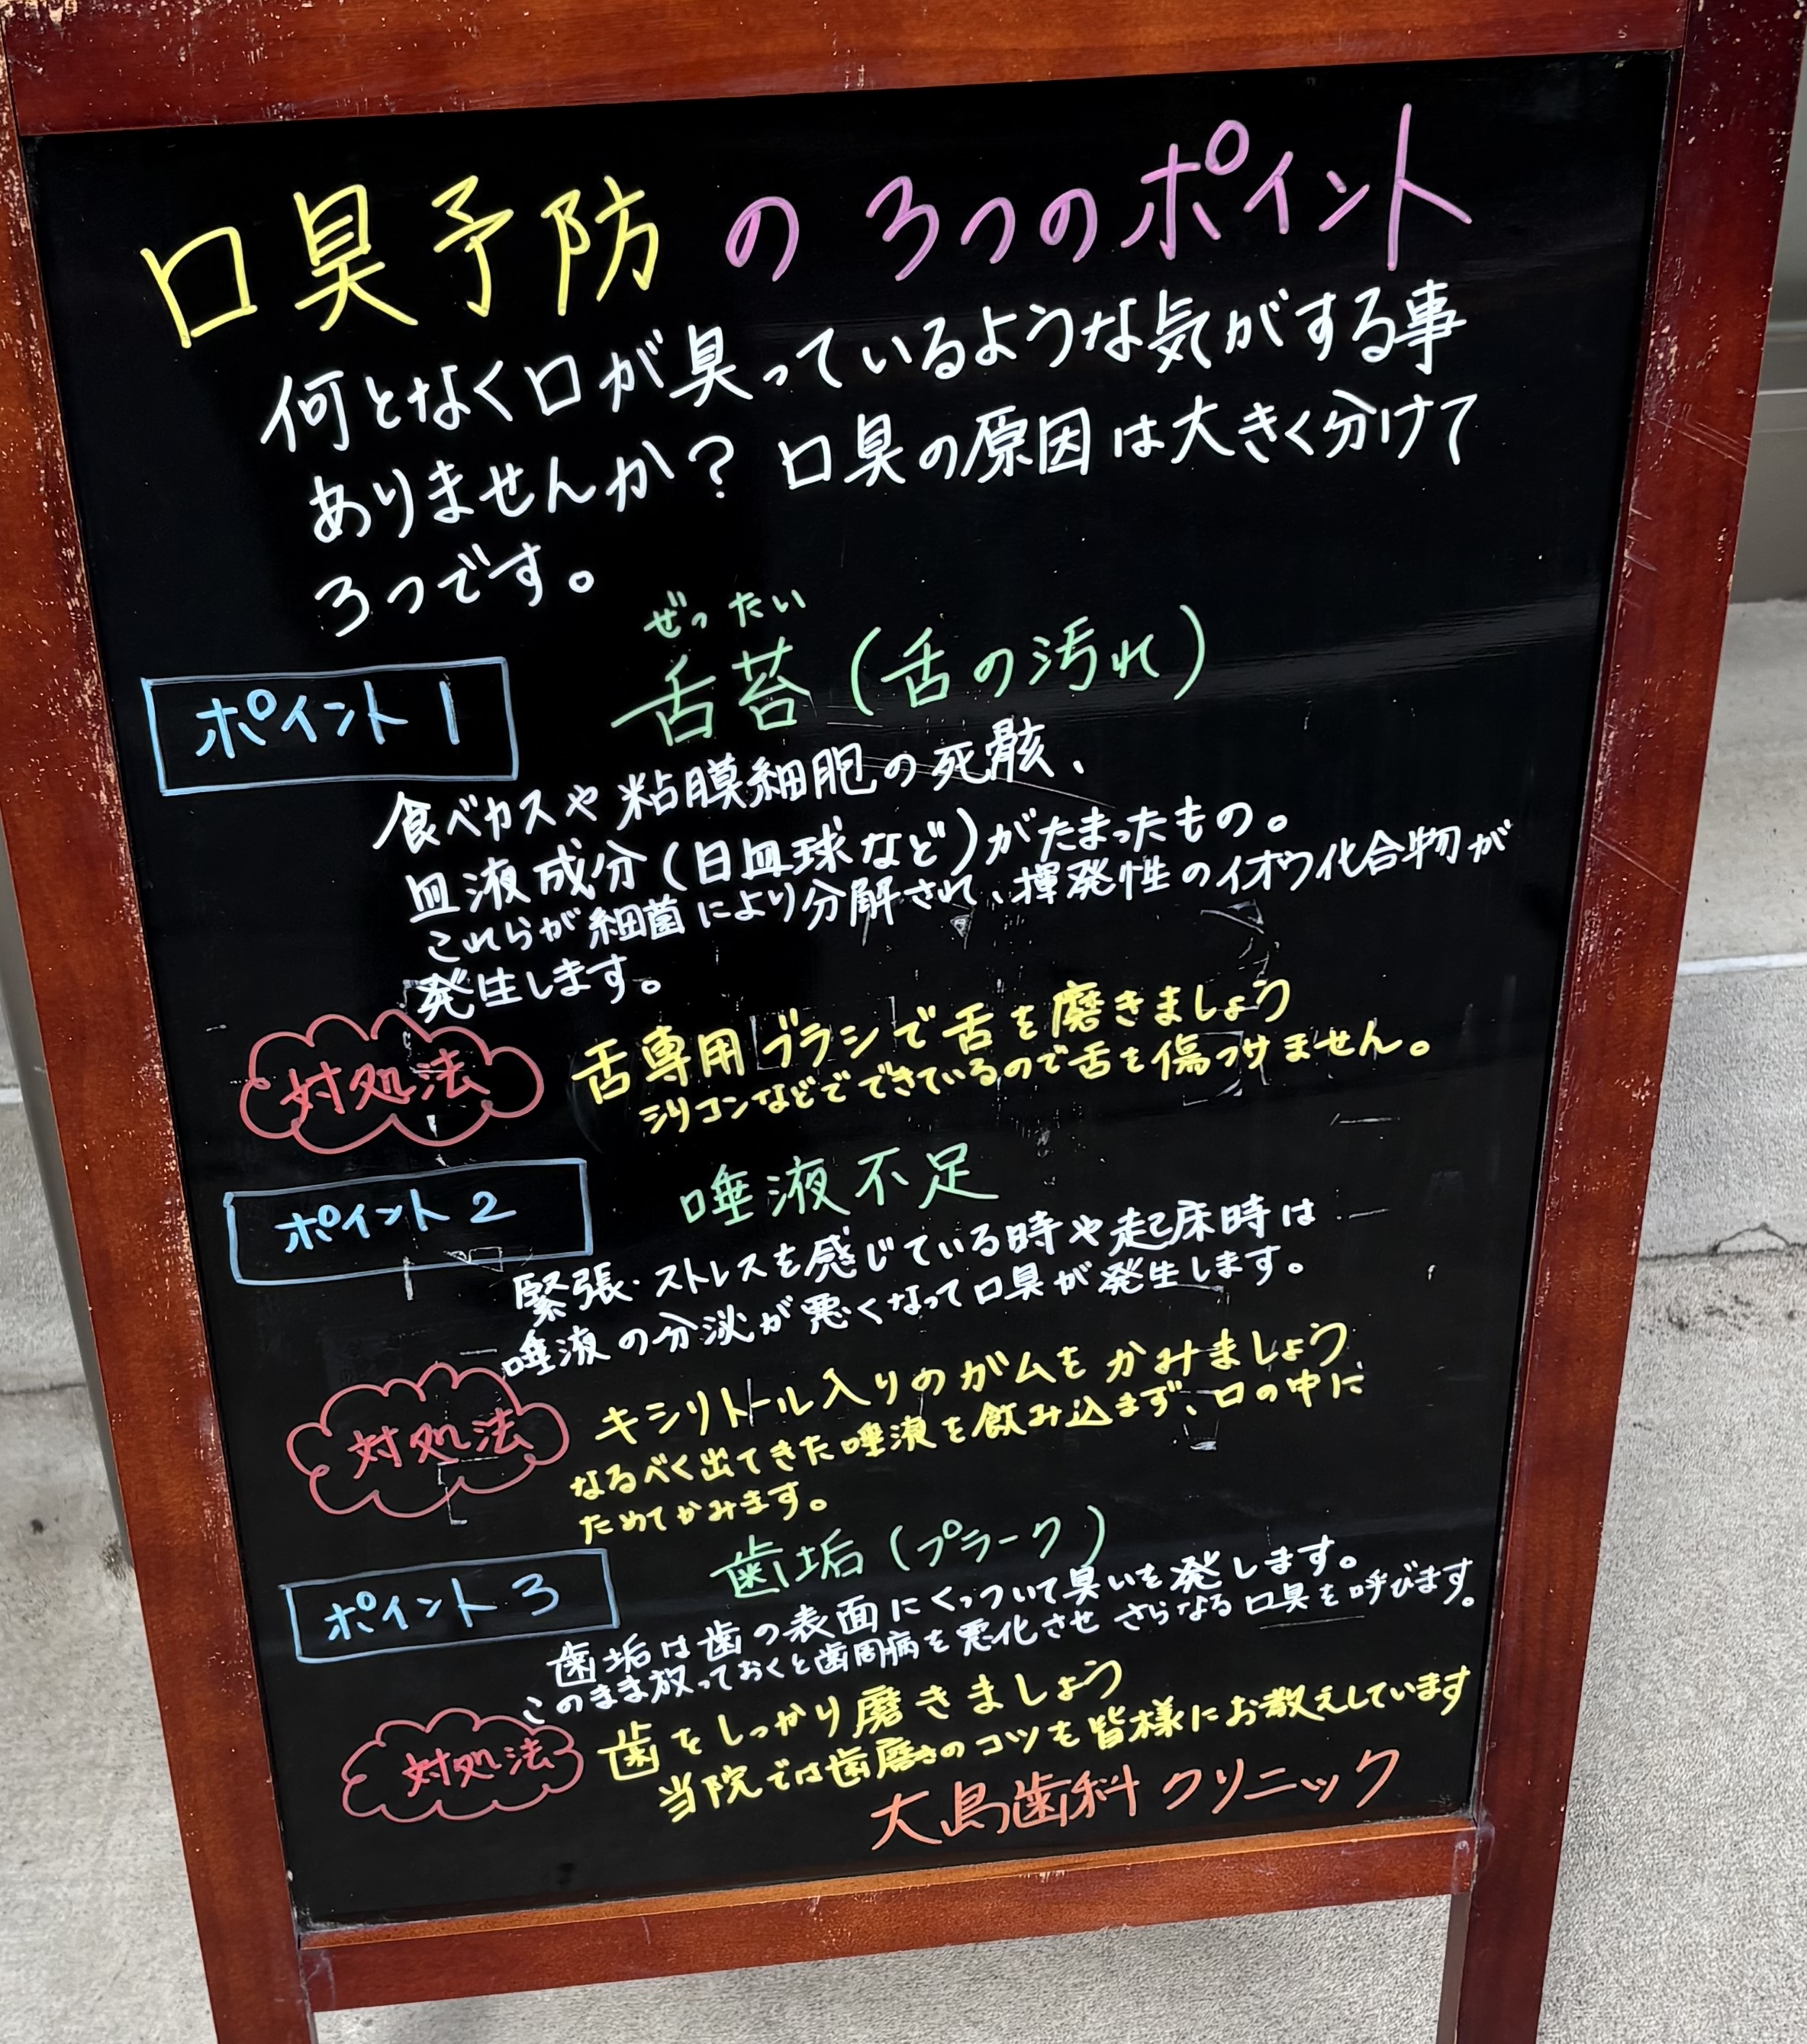 口臭予防の3つのポイント
何となく口が臭っているような気がする事
ありませんか？口臭の原因は大きく分けて
3つです。
ぜったい
ポイント1 舌苔(舌の汚れ)
食べカスや粘膜細胞の死骸、
血液成分(白血球など)がたまったもの。
これらが細菌により分解され、揮発性のイオウ化合物が
発生します。
対処法 舌専用ブラシで舌を磨きましょう
シリコンなどでできているので舌を傷つけません。
ポイント2 唾液不足
緊張・ストレスを感じている時や起床時は
唾液の分泌が悪くなって口臭が発生します。
対処法 キシリトール入りのガムをかみましょう
なるべく出てきた唾液を飲み込まず、口の中に
ためてかみます。
ポイント3 歯垢(プラーク)
歯垢は歯の表面にくっついて臭いを発します。
このまま放っておくと歯周病を悪化させさらなる口臭を呼びます。
対処法 歯をしっかり磨きましょう
当院では歯磨きのコツを皆様にお教えしています
大島歯科クリニック